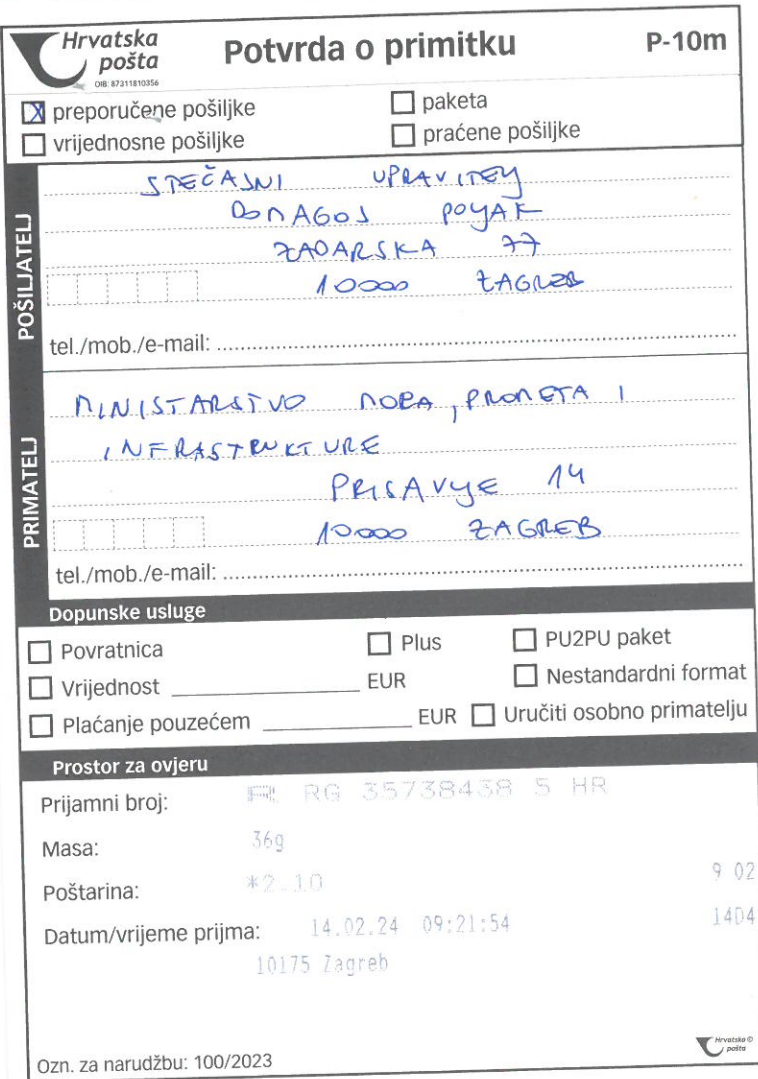 Hrvatska pošta
OIB: 87311810356
Potvrda o primitku
P-10m
X preporučene pošiljke
paketa
vrijednosne pošiljke
praćene pošiljke
POŠILJATELJ
STEČAJNI UPRAVITELJ
DOMAGOJ POLJAK
ZADARSKA 77
10000 ZAGREB
tel./mob./e-mail:
PRIMATELJ
MINISTARSTVO MORA, PROMETA I
INFRASTRUKTURE
PRISAVLJE 14
10000 ZAGREB
tel./mob./e-mail:
Dopunske usluge
Povratnica
Plus
PU2PU paket
Vrijednost EUR
Nestandardni format
Plaćanje pouzećem EUR
Uručiti osobno primatelju
Prostor za ovjeru
Prijamni broj: R RG 35738438 5 HR
Masa: 36g
Poštarina: *2.10
9 02
Datum/vrijeme prijma: 14.02.24 09:21:54
14D4
10175 Zagreb
Ozn. za narudžbu: 100/2023
Hrvatska pošta